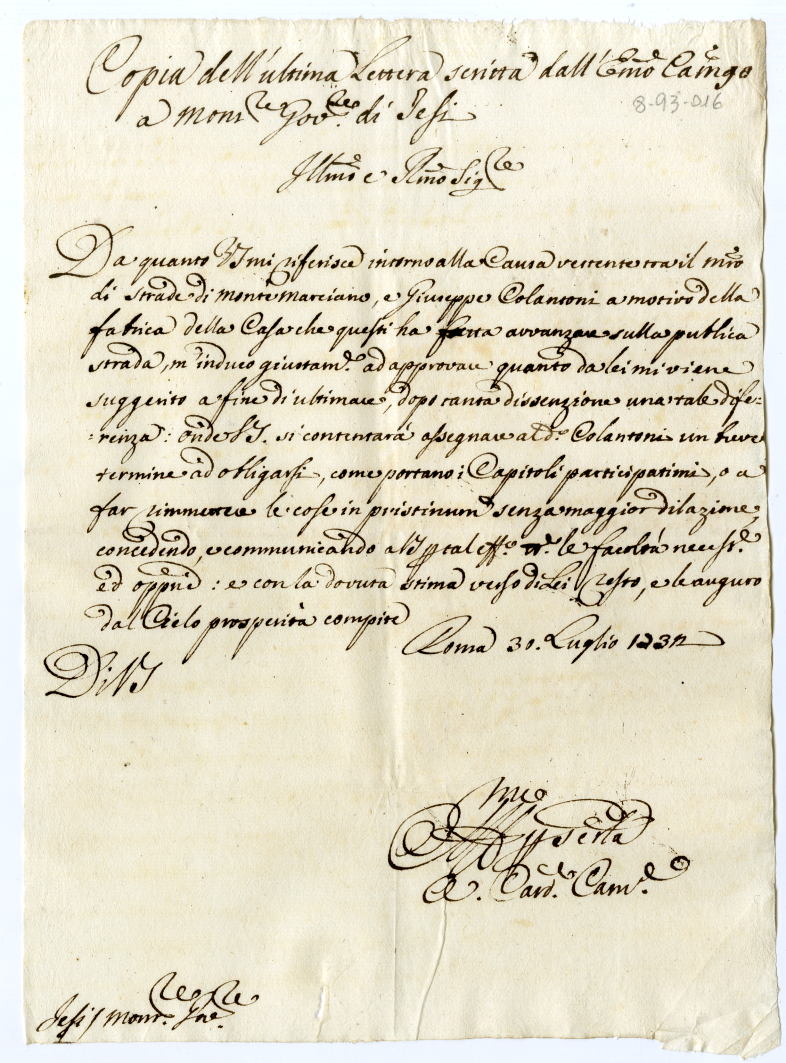 Copia dell'ultima Lettera scritta dall'Emo Camgo
a Monsre Govre di Jesi
8-93-016
Illmo e Rmo Sigre
Da quanto VS mi riferisce intorno alla Causa vertente tra il mro
di strade di Monte Marciano, e Giuseppe Colantoni a motivo della
fabrica della Casa che questi ha fatta avvanzare sulla publica
strada, m'induco giustame. ad approvare quanto da lei mi viene
suggerito a fine di ultimare, dopo tanta dissenzione una tale dife=
=renza: onde VS. si contentarà assegnare al do. Colantoni un breve
termine ad obligarsi, come portano i Capitoli participatimi, o a
far rimettere le cose in pristinum senza maggior dilazione,
concedendo, e communicando a VS p tal effo. le facoltà necesse.
ed opprne: e con la dovuta stima verso di Lei resto, e le auguro
dal Cielo prosperità compite
Roma 30. Luglio 1732
Di VS
Come
A. Card. Came.
Jesi / Monsre. Gove.